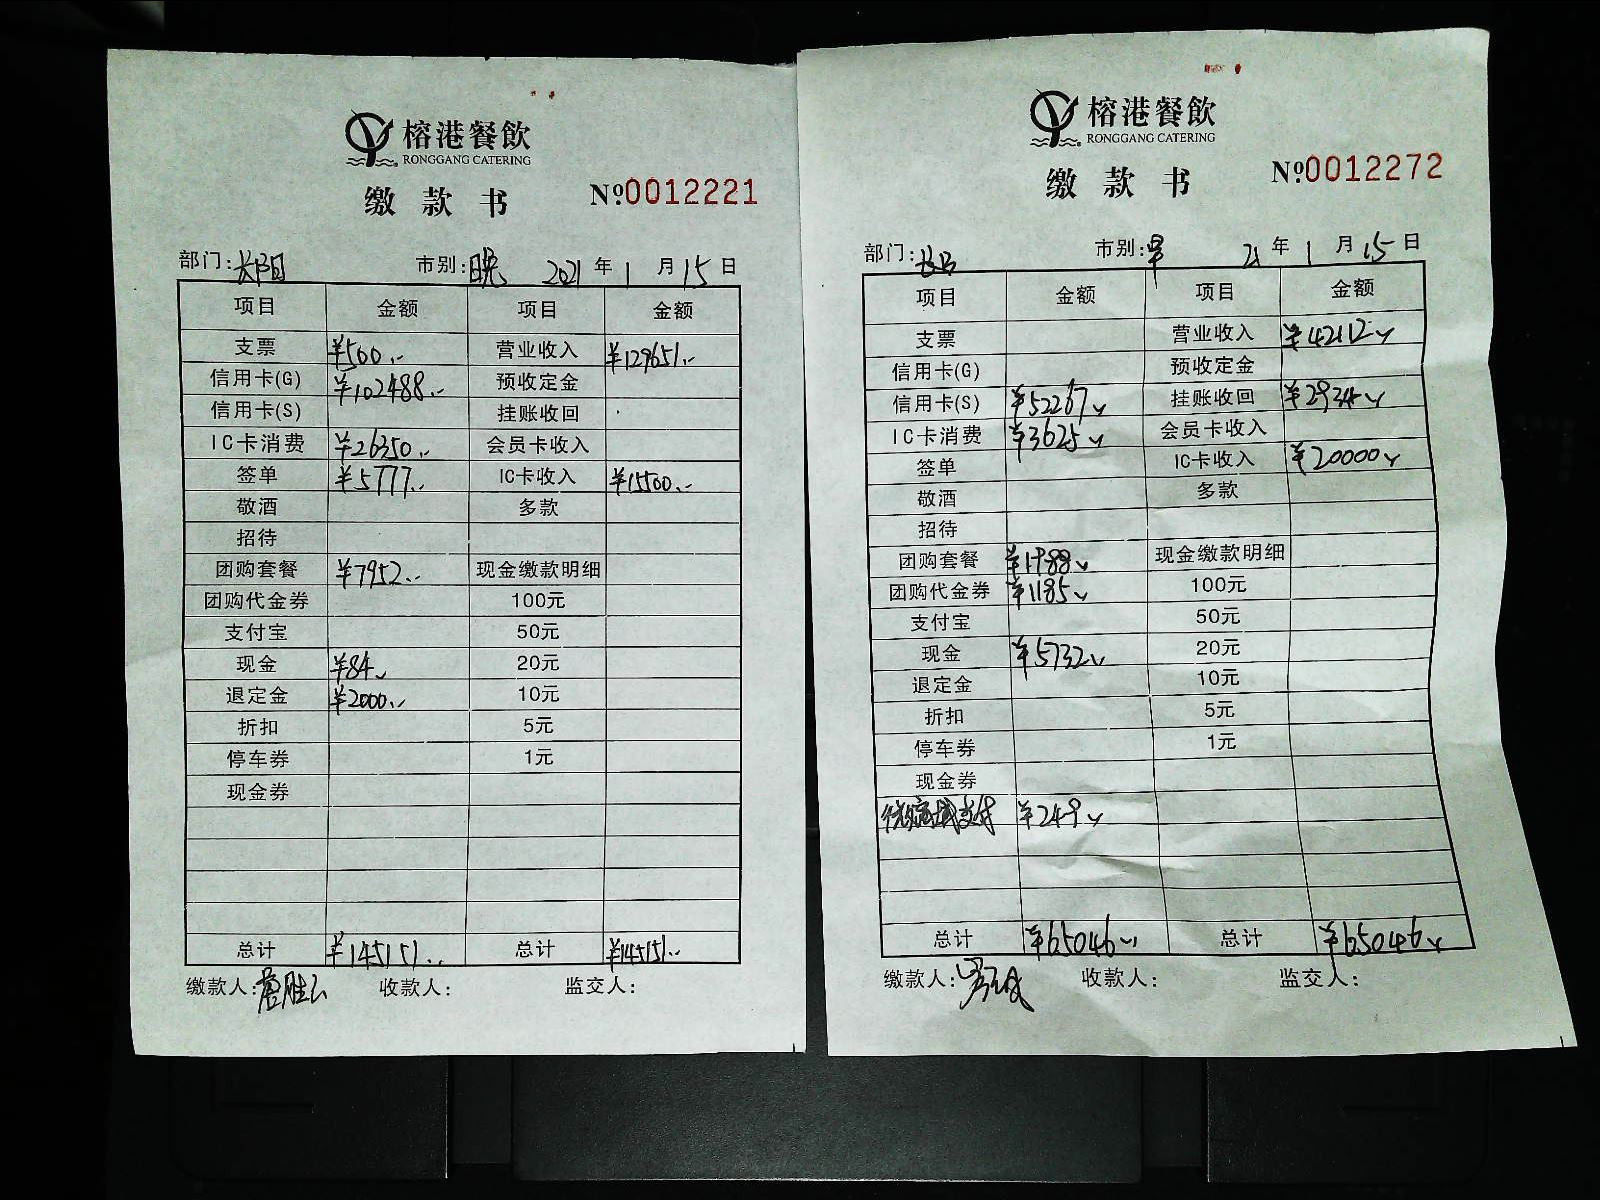 榕港餐飲
RONGGANG CATERING
缴款书 №0012221
部门: 长阳 市别: 晚 2021年1月15日
项目 金额 项目 金额
支票 ¥500.- 营业收入 ¥129651.-
信用卡(G) ¥102488.- 预收定金
信用卡(S) 挂账收回
IC卡消费 ¥26350.- 会员卡收入
签单 ¥5777.- IC卡收入 ¥15500.-
敬酒 多款
招待
团购套餐 ¥7952.- 现金缴款明细
团购代金券 100元
支付宝 50元
现金 ¥84.- 20元
退定金 ¥2000.- 10元
折扣 5元
停车券 1元
现金券
总计 ¥145151.- 总计 ¥145151.-
缴款人: 收款人: 监交人:
榕港餐飲
RONGGANG CATERING
缴款书 №0012272
部门: 市别: 早 21年1月15日
项目 金额 项目 金额
支票 营业收入 ¥42112.-
信用卡(G) 预收定金
信用卡(S) ¥52267.- 挂账收回 ¥2934.-
IC卡消费 ¥3625.- 会员卡收入
签单 IC卡收入 ¥20000.-
敬酒 多款
招待
团购套餐 ¥1988.- 现金缴款明细
团购代金券 ¥1185.- 100元
支付宝 50元
现金 ¥5732.- 20元
退定金 10元
折扣 5元
停车券 1元
现金券
支付 ¥249.-
总计 ¥65046.- 总计 ¥65046.-
缴款人: 收款人: 监交人: